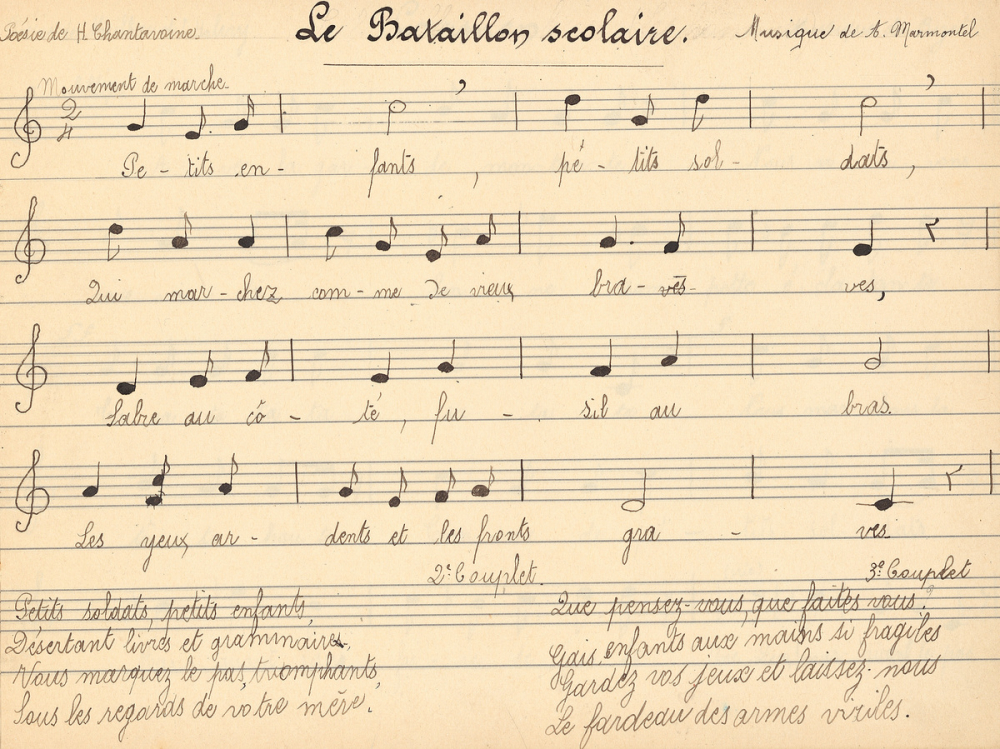 Poésie de H. Chantavoine.
Le Bataillon scolaire.
Musique de A. Marmontel
Mouvement de marche.
2
4
Pe - tits en - fants , pé - tits sol - dats ,
Qui mar - chez com - me de vieux bra - ves - ves,
Sabre au cô - té, fu - sil au bras.
Les yeux ar - dents et les fronts gra - ves
2e Couplet.
Petits soldats, petits enfants,
Désertant livres et grammaires.
Vous marquez le pas, triomphants,
Sous les regards de votre mère.
3e Couplet
Que pensez-vous, que faites vous?
Gais, enfants aux mains si fragiles
Gardez vos jeux et laissez-nous
Le fardeau des armes viriles.